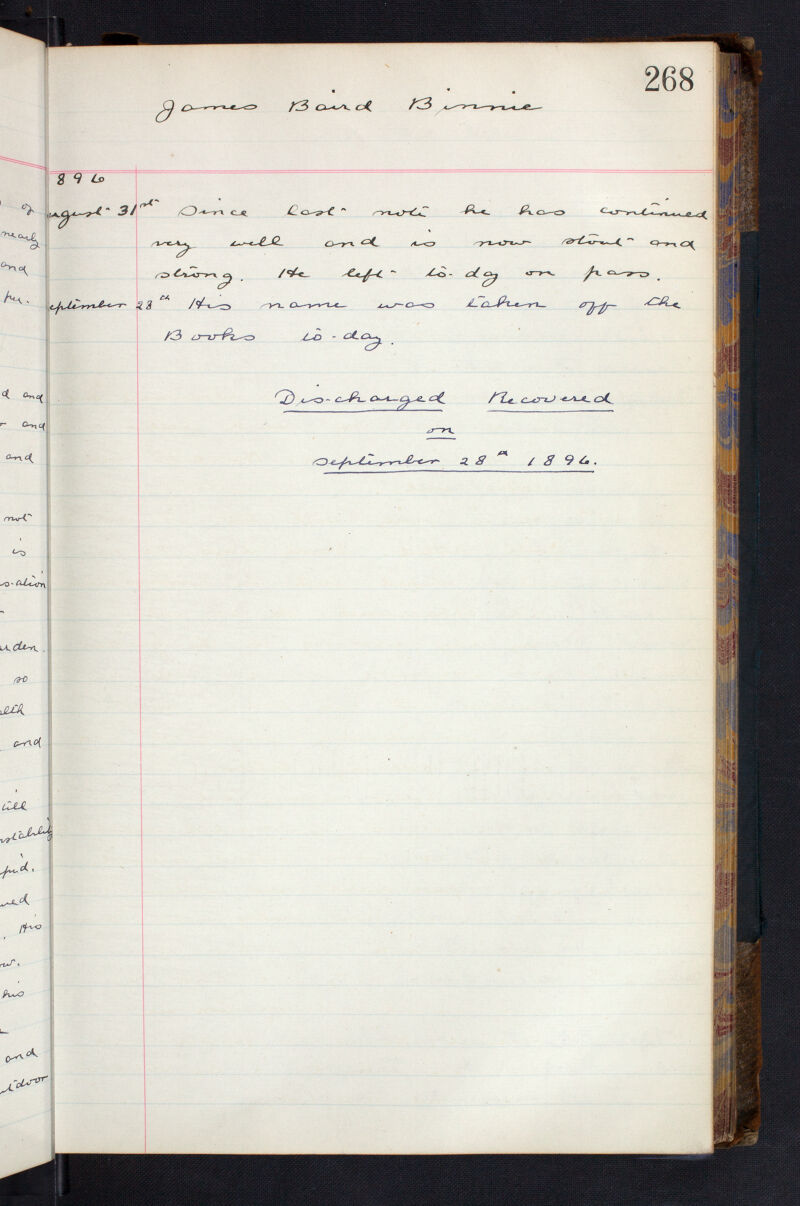 268
James Baird Binnie
896
ugust 31st Since last note he has continued
very well and is now stout and
strong. He left to-day on pass.
eptember 28th His name was taken off the
Books to-day.
Discharged Recovered
on
September 28th 1896.
nearly
and
per.
d and
and
and
not
is
sation
arden.
so
alth
and
till
nstability
pid.
ned
. His
his
and
utdoor